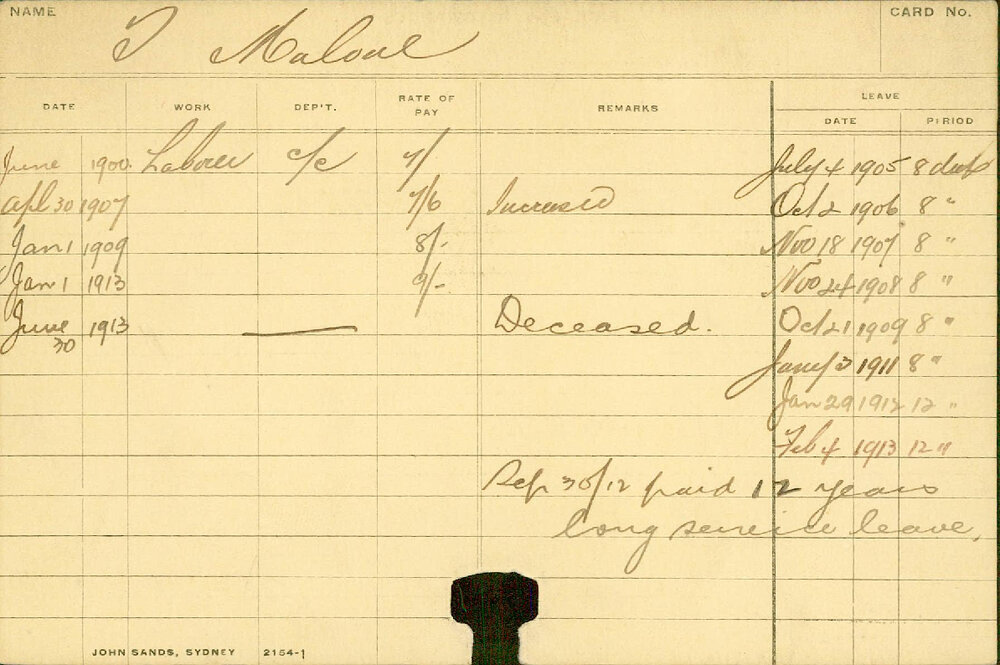 NAME CARD No.
T Malone
DATE WORK DEP'T. RATE OF PAY REMARKS LEAVE
DATE PERIOD
June 1900 Laborer c/c 7/ July 4 1905 8
Apl 30 1907 7/6 Increased Oct 2 1906 8 "
Jan 1 1909 8/- Nov 18 1907 8 "
Jan 1 1913 9/- Nov 24 1908 8 "
June 30 1913 — Deceased. Oct 21 1909 8 "
Jany 3 1911 8 "
Jan 29 1912 12 "
Feb 4 1913 12 "
Sep 30/12 paid 12 years
long service leave,
JOHN SANDS, SYDNEY 2154-1